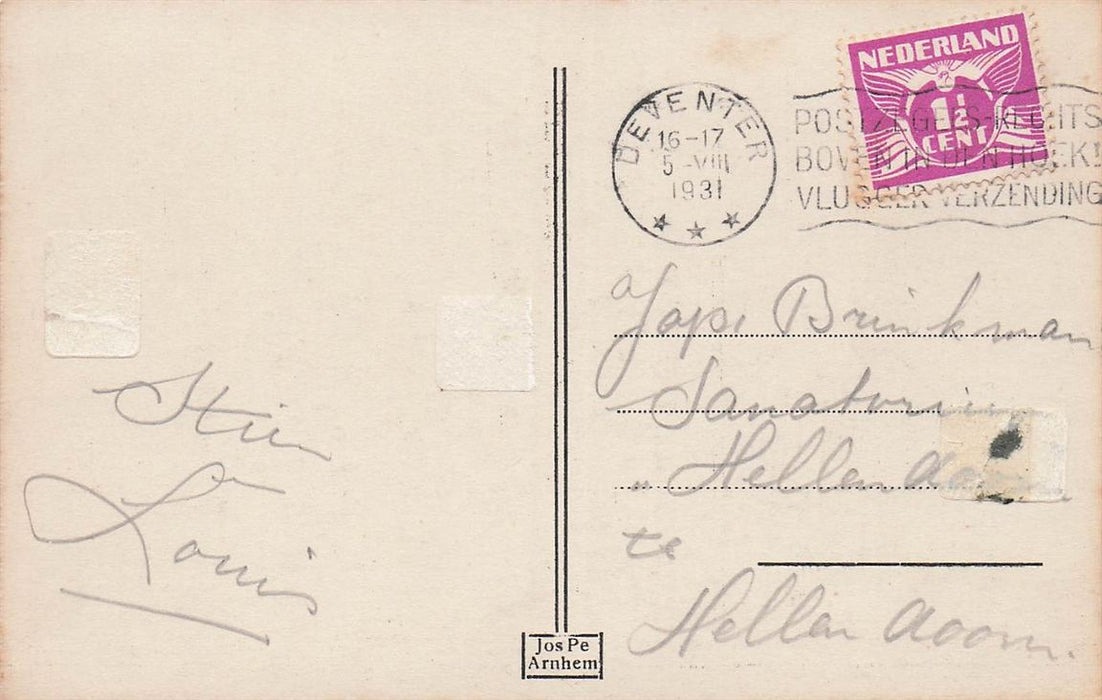 NEDERLAND
1½
CENT
DEVENTER
16-17
5-VIII
1931
POSTZEGELS RECHTS
BOVEN IN DEN HOEK!
VLUGGER VERZENDING
Japi Brinkman
Sanatorium
" Hellendoorn
te
Hellendoorn.
Stien
Louis
Jos Pe
Arnhem